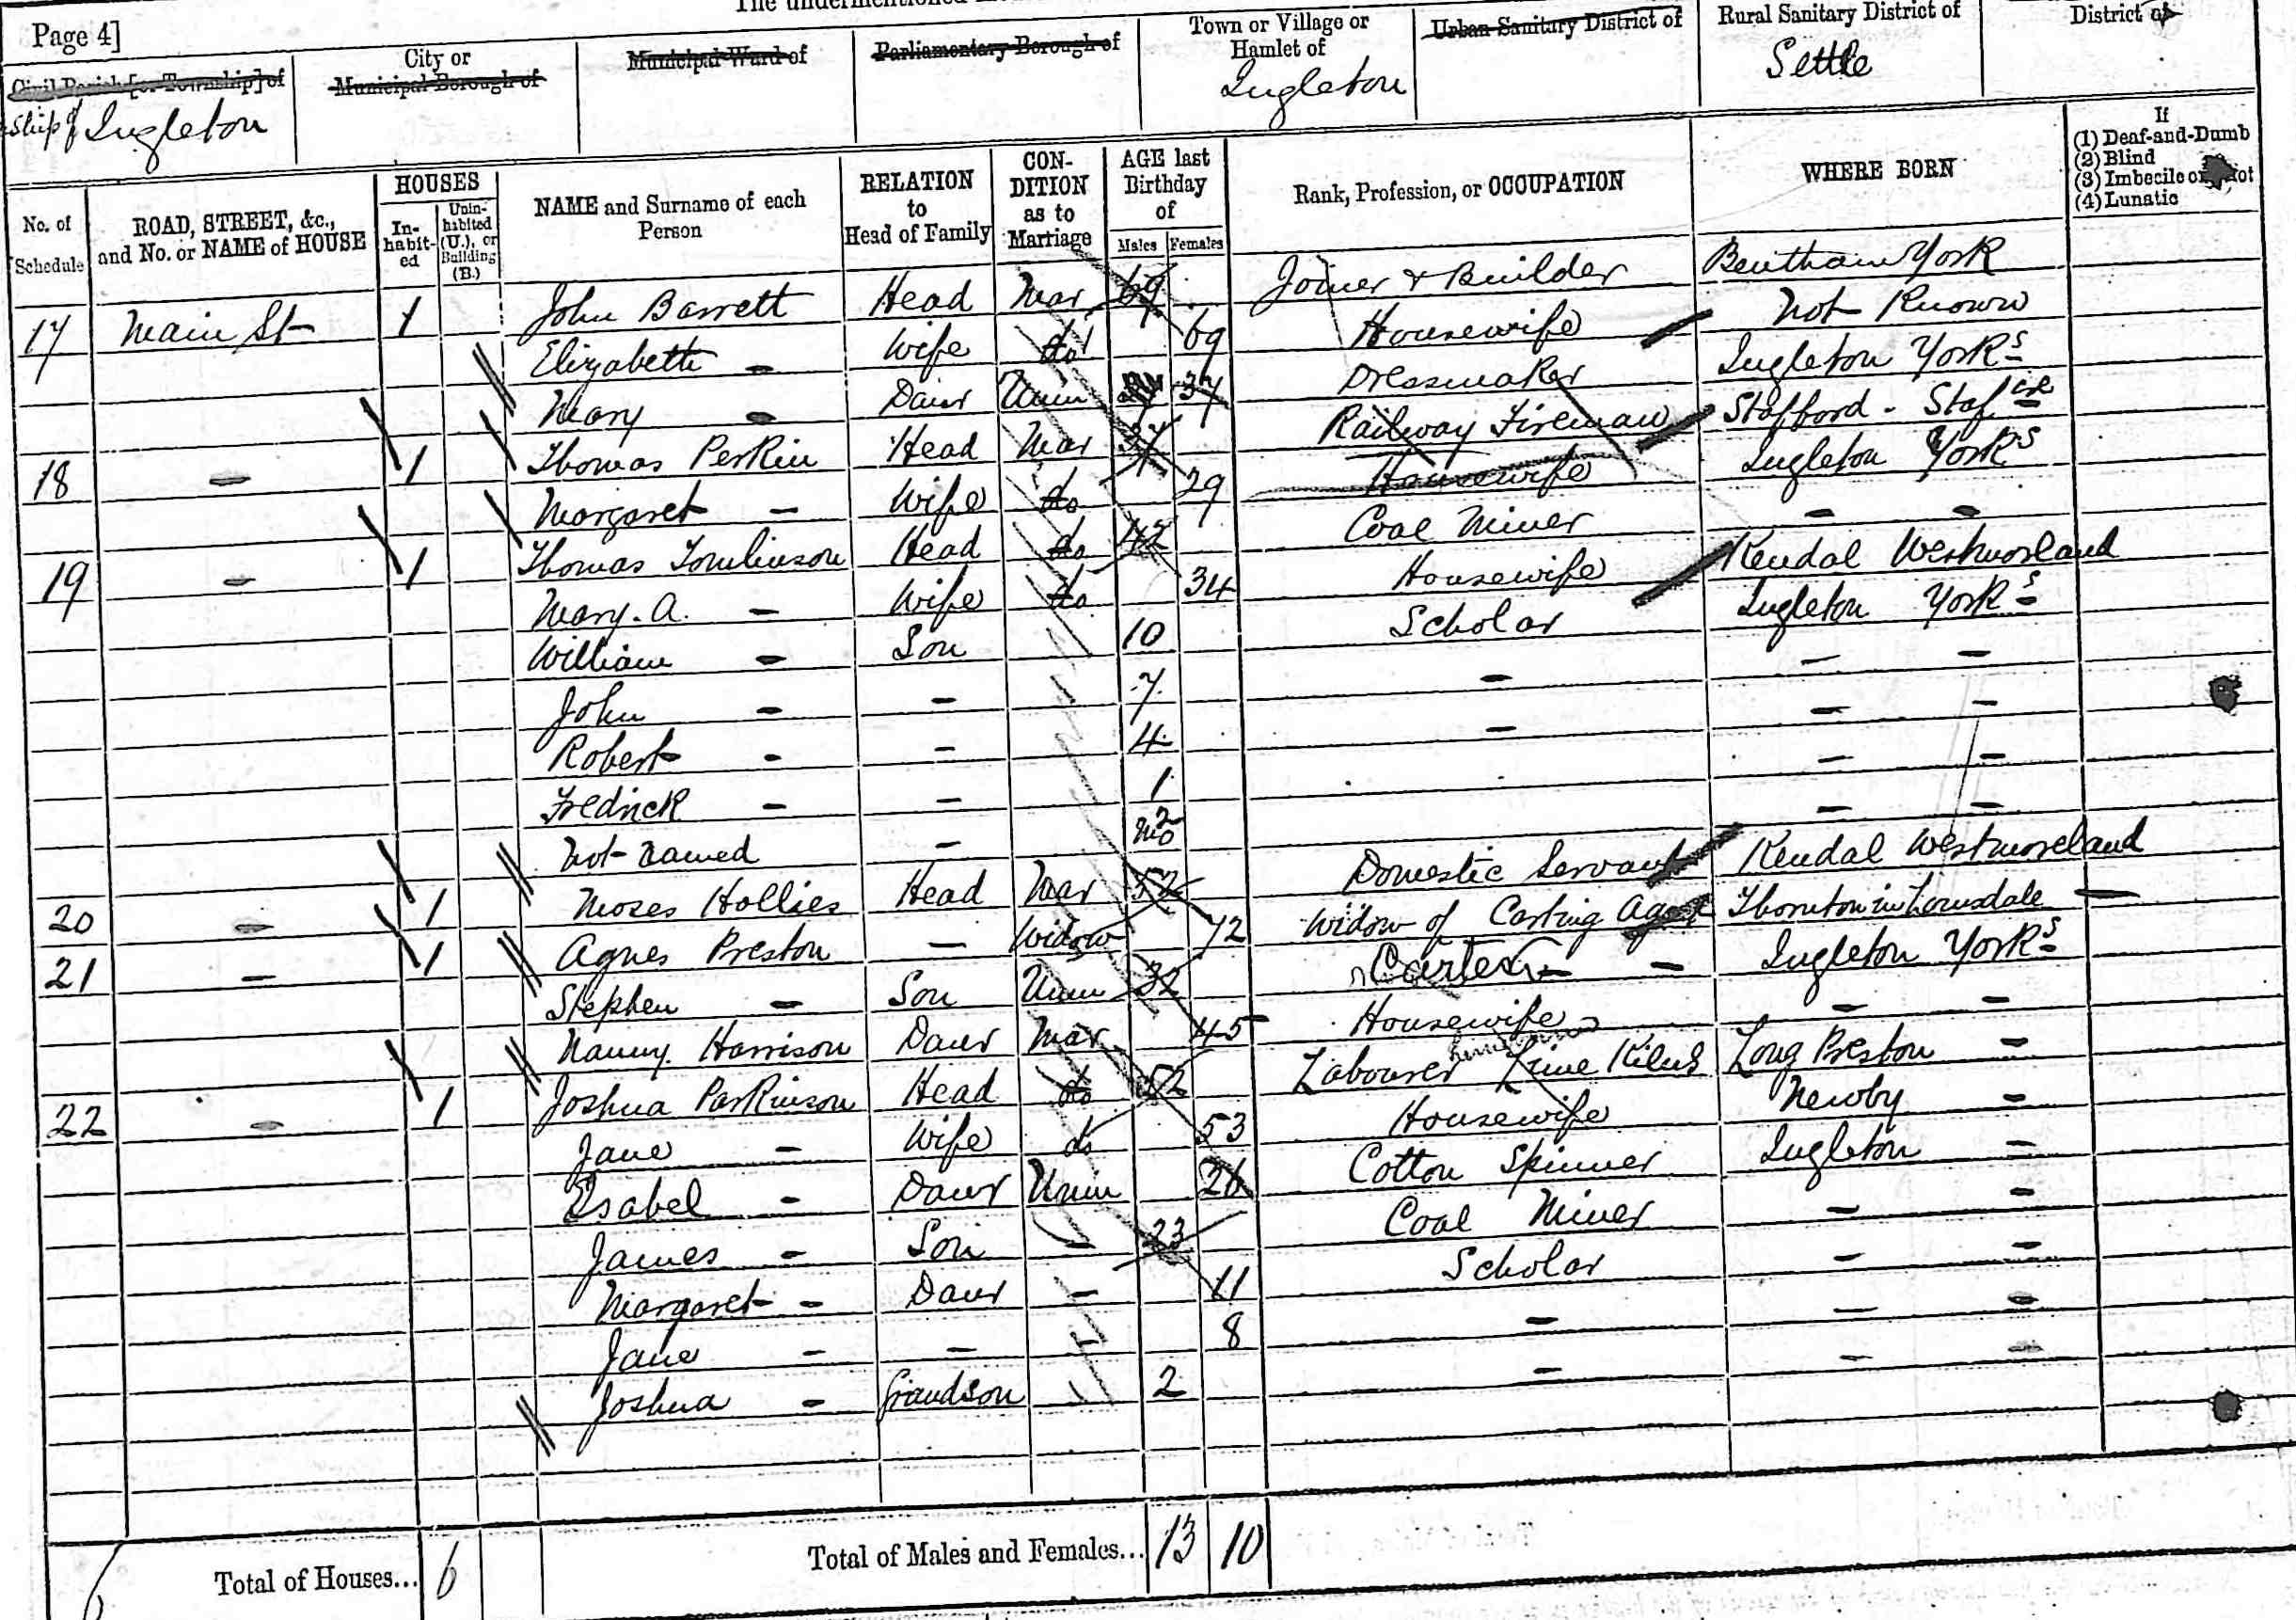 Page 4]
Civil Parish [or Township] of
ship of Ingleton
City or
Municipal Borough of
Municipal Ward of
Parliamentary Borough of
Town or Village or
Hamlet of
Ingleton
Urban Sanitary District of
Rural Sanitary District of
Settle
District of
No. of
Schedule
ROAD, STREET, &c.,
and No. or NAME of HOUSE
HOUSES
In-
habit-
ed
Unin-
habited
(U.), or
Building
(B.)
NAME and Surname of each
Person
RELATION
to
Head of Family
CON-
DITION
as to
Marriage
AGE last
Birthday
of
Males Females
Rank, Profession, or OCCUPATION
WHERE BORN
If
(1) Deaf-and-Dumb
(2) Blind
(3) Imbecile or Idiot
(4) Lunatic
17 Main St 1 John Barrett Head Mar 69 Joiner & Builder Bentham York
Elizabeth - Wife do 69 Housewife Not Known
Mary - Daur Unm 37 Dressmaker Ingleton Yorks
18 - 1 Thomas Perkin Head Mar 37 Railway Fireman Stafford - Staf
Margaret - Wife do 29 Housewife Ingleton Yorks
19 - 1 Thomas Tomlinson Head do 42 Coal Miner - -
Mary. A. - Wife do 34 Housewife Kendal Westmorland
William - Son 10 Scholar Ingleton Yorks
John - - 7 - - -
Robert - - 4 - - -
Fredrick - - 1 - -
Not named - 2 mo - -
20 - 1 Moses Hollies Head Mar 52 Domestic Servant Kendal Westmoreland
21 - 1 Agnes Preston - Widow 72 Widow of Carting Agent Thornton in Lonsdale -
Stephen - Son Unm 32 Carter - Ingleton Yorks
Nanny Harrison Daur Mar 45 Housewife - -
22 - 1 Joshua Parkinson Head do 52 Labourer Lime Kilns Long Preston -
Jane - Wife do 53 Housewife Newby -
Isabel - Daur Unm 26 Cotton Spinner Ingleton -
James - Son - 23 Coal Miner - -
Margaret - Daur - 11 Scholar - -
Jane - - - 8 - - -
Joshua - Grandson 2 - - -
6 Total of Houses... 6 Total of Males and Females... 13 10